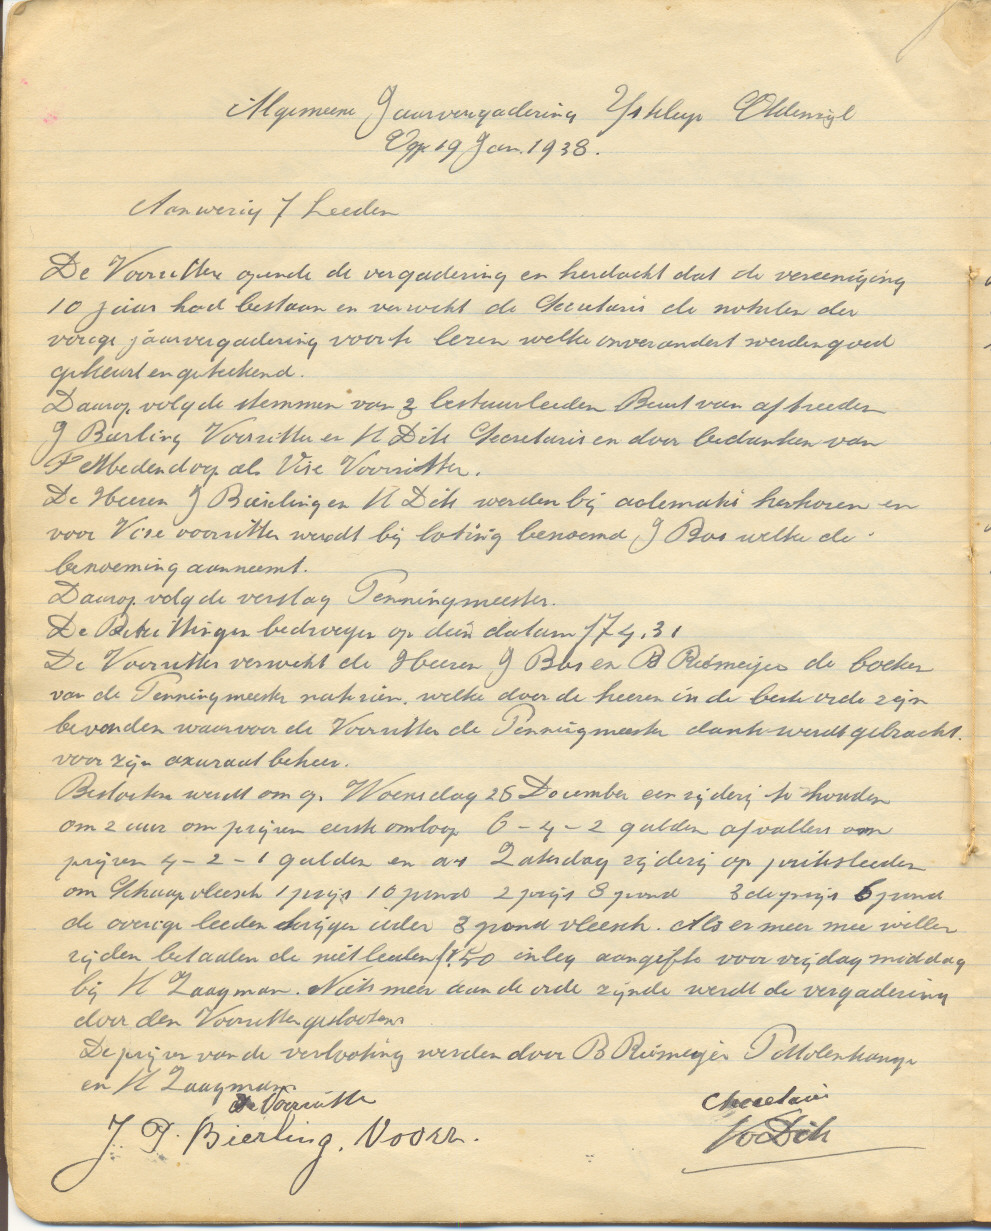 Algemeene Jaarvergadering Ysklup Oldenzijl
Op 19 Jan. 1938.
Aanwezig 7 Leeden
De Voorzitter opende de vergadering en herdacht dat de vereeniging
10 jaar had bestaan en verzocht de Secretaris de notulen der
vorige jaarvergadering voor te lezen welke onverandert werden goed
gekeurt en geteekend.
Daarop volgde stemmen van 3 bestuurleeden Beurt van aftreeden
J Bierling Voorzitter en H Dik Secretaris en door bedanken van
Medendorp als Vise Voorzitter.
De Heeren J Bierling en H Dik werden bij aclematie herkozen en
voor Vise voorzitter werdt bij loting benoemd J Bos welke de
benoeming aanneemt.
Daarop volgde verslag Penningmeester.
De Bezittingen bedroegen op dein datum 174,31
De Voorzitter verzocht de Heeren J Bos en B Riemeijer de boeken
van de Penningmeester natezien. welke door de heeren in de beste orde zijn
bevonden waarvoor de Voorzitter de Penningmeester dank werdt gebracht.
voor zijn axuraat beheer.
Besloten werdt om op Woensdag 28 December een rijderij te houden
om 2 uur om prijzen eerste omloop 6 - 4 - 2 gulden afvallers om
prijzen 4 - 2 - 1 gulden en a.s Zaterdag rijderij op priksleeden
om Schaapvleesch 1 prijs 10 pond 2 prijs 8 pond 3de prijs 6 pond
de overige leeden krijgen ieder 3 pond vleesch. Als er meer mee willen
rijden betaalen de niet leeden f 1.50 inleg aangifte voor vrijdag middag
bij H Zaagman. Niets meer aan de orde zijnde werdt de vergadering
door den Voorzitter geslooten
De prijzen van de verlooting werden door B Riemeijer P Molenkamp
en H Zaagman
de Voorzitter
J. P. Bierling, Voorz.
Secretaris
H Dik